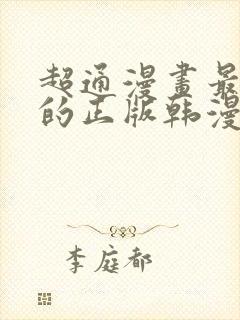 超通漫畫最
的正版韩漫
李庭都